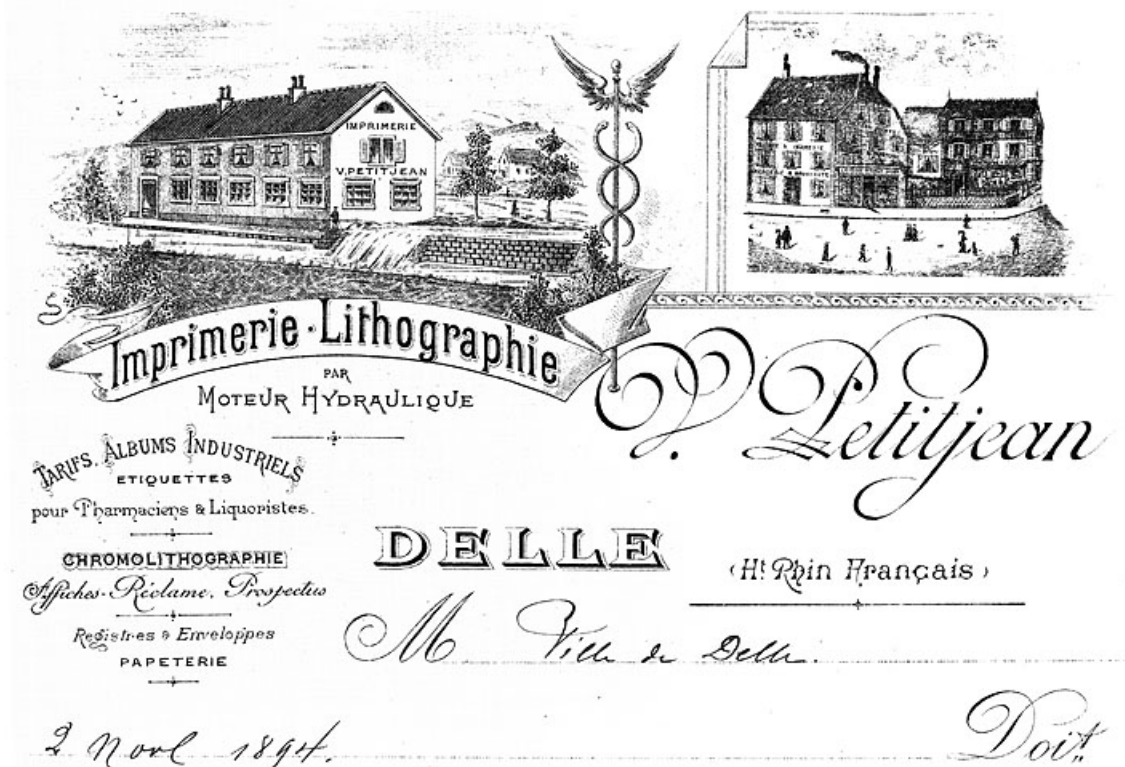 IMPRIMERIE
V. PETITJEAN
Imprimerie · Lithographie
PAR
MOTEUR HYDRAULIQUE
TARIFS. ALBUMS INDUSTRIELS
ETIQUETTES
pour Pharmaciens & Liquoristes.
CHROMOLITHOGRAPHIE
Affiches-Réclame. Prospectus
Registres & Enveloppes
PAPETERIE
V. Petitjean
DELLE
(Ht Rhin Français)
M Ville de Delle.
2 Novb 1894.
Doit